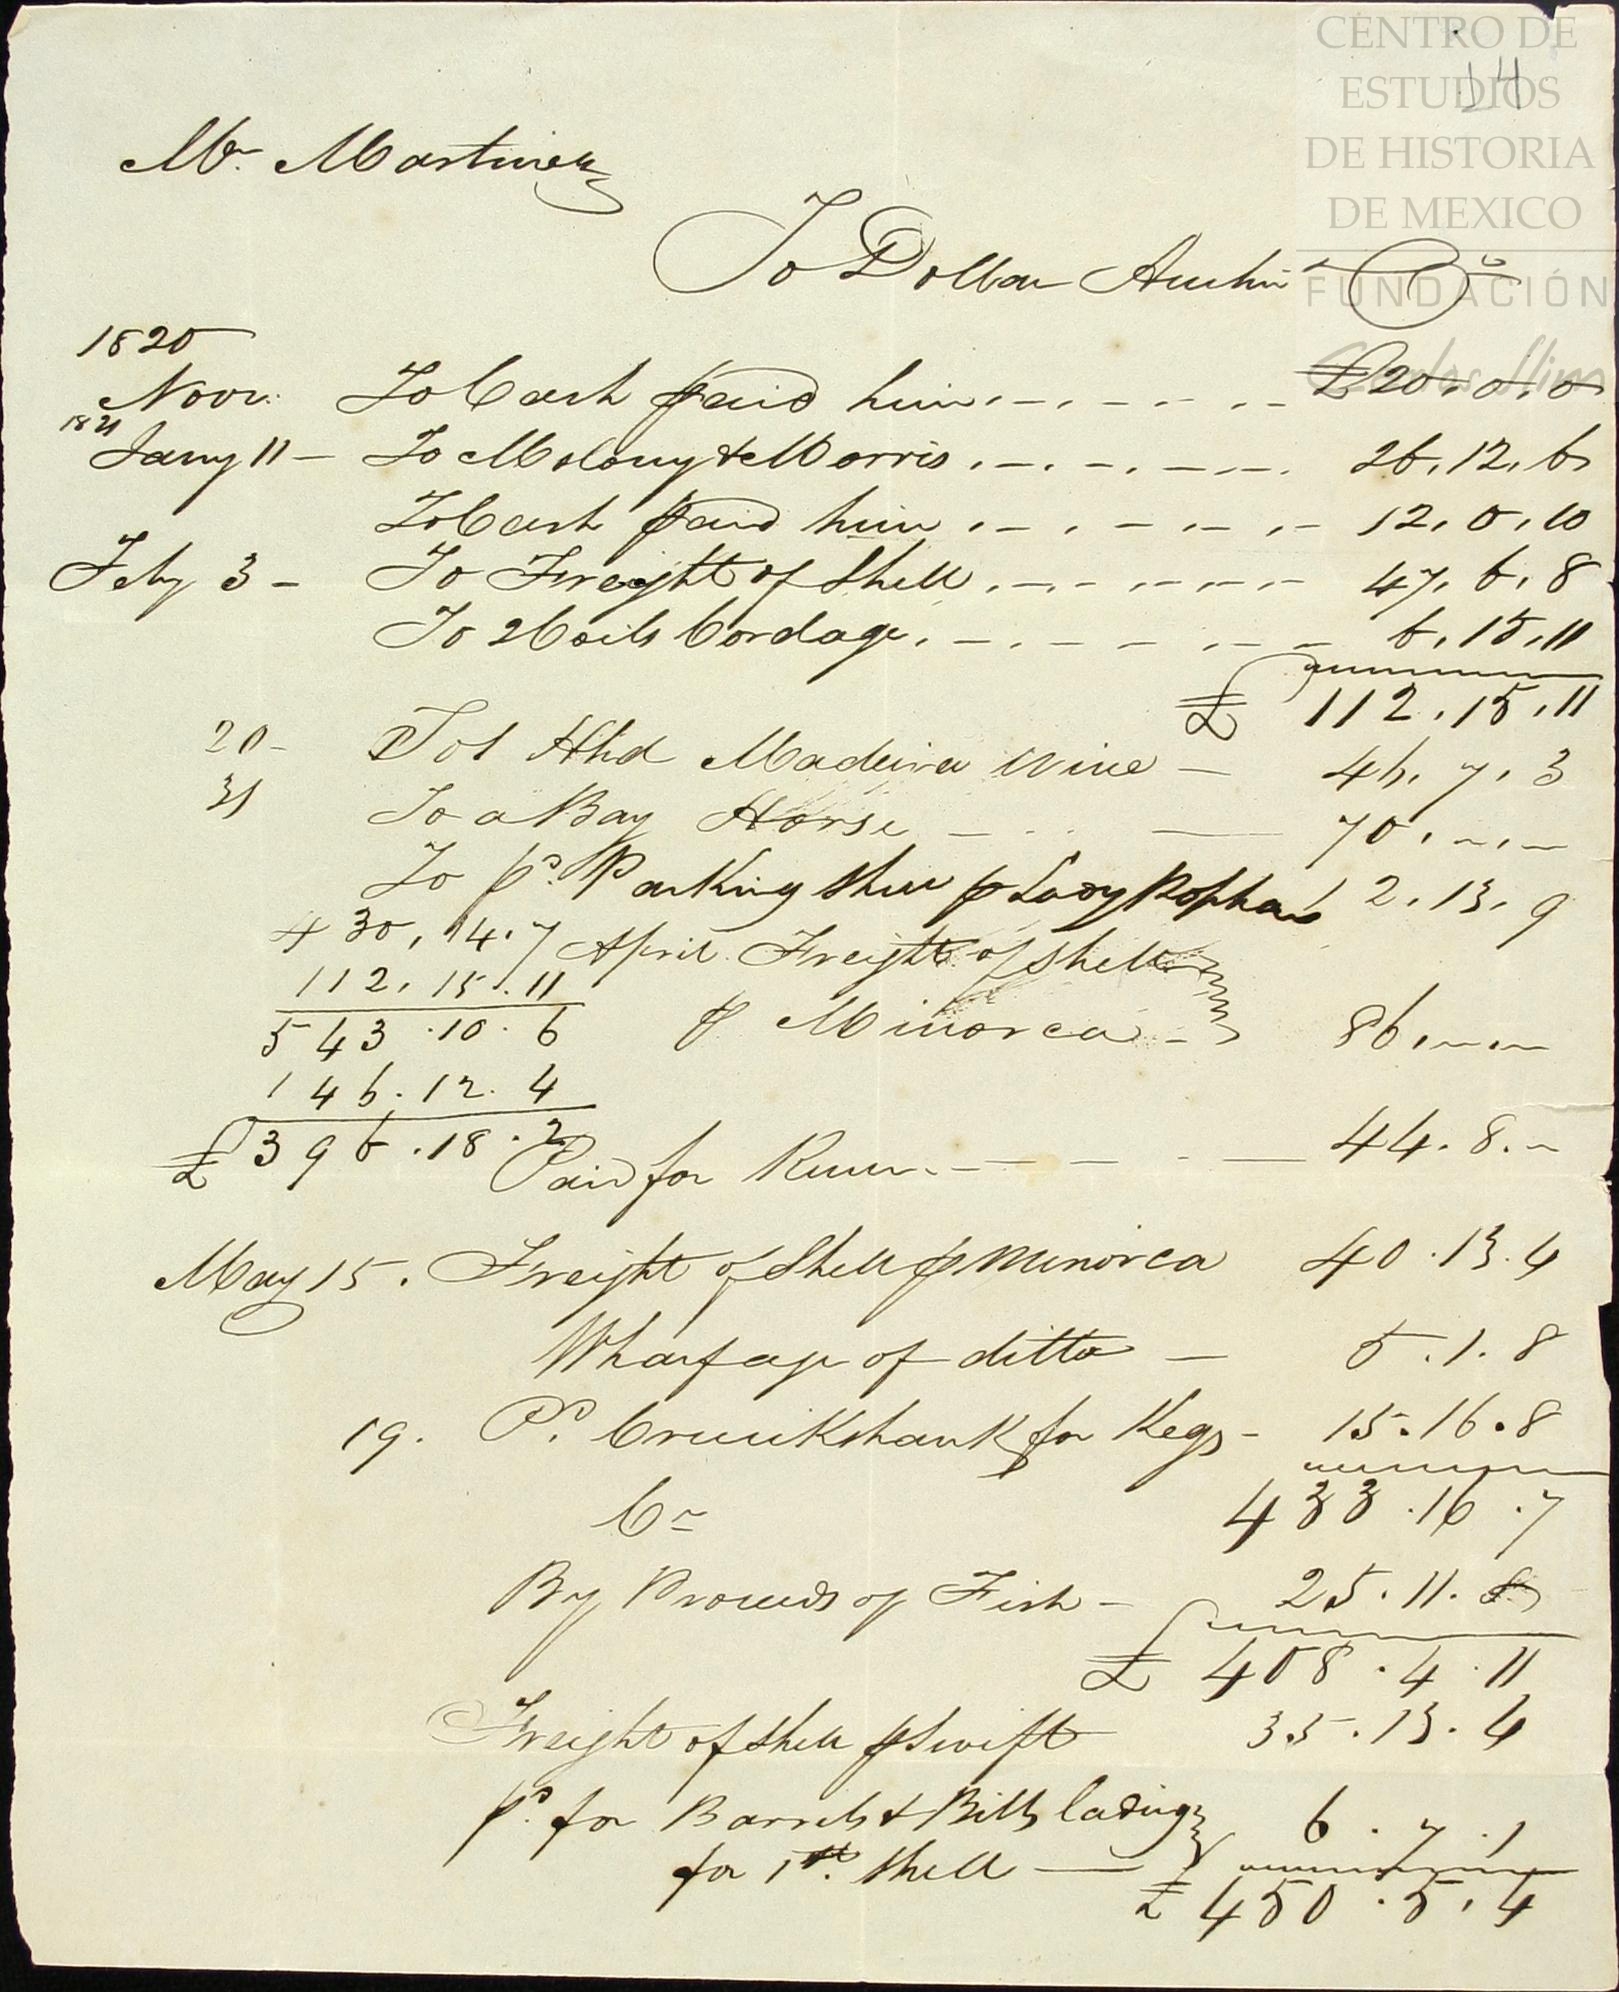 CENTRO DE
ESTUDIOS
DE HISTORIA
DE MEXICO
FUNDACIÓN
Carlos Slim
14
Mr. Martinez
To Dollar Austin & Co
1820
Novr. To Cash paid him £20. 0. 0
1821
Jany 11 - To Molony & Morris 26. 12. 6
To Cash paid him 12. 0. 10
Feby 3 - To Freight of Shell 47. 6. 8
To 2 Coils Cordage 6. 15. 11
£ 112. 15. 11
20 - To 1 Hhd Madeira Wine - 46. 7. 3
21 To a Bay Horse 70. ~. ~
To pd. Packing Shell p Lady Popham 12. 13. 9
430. 14. 7 April Freight of Shell
112. 15. 11
543. 10. 6 p Minorca - 86. ~. ~
146. 12. 4
£ 396. 18. 2 Paid for Rum 44. 8. ~
May 15. Freight of Shell p Minorca 40. 13. 4
Wharfage of ditto - 5. 1. 8
19. Pd. Cruikshank for Kegs - 15. 16. 8
Cr 433. 16. 7
By Proceeds of Fish - 25. 11. 8
£ 408. 4. 11
Freight of Shell p Swift 35. 13. 4
pd. for Barrels & Bills lading 6. 7. 1
for 1st. Shell — £ 450. 5. 4